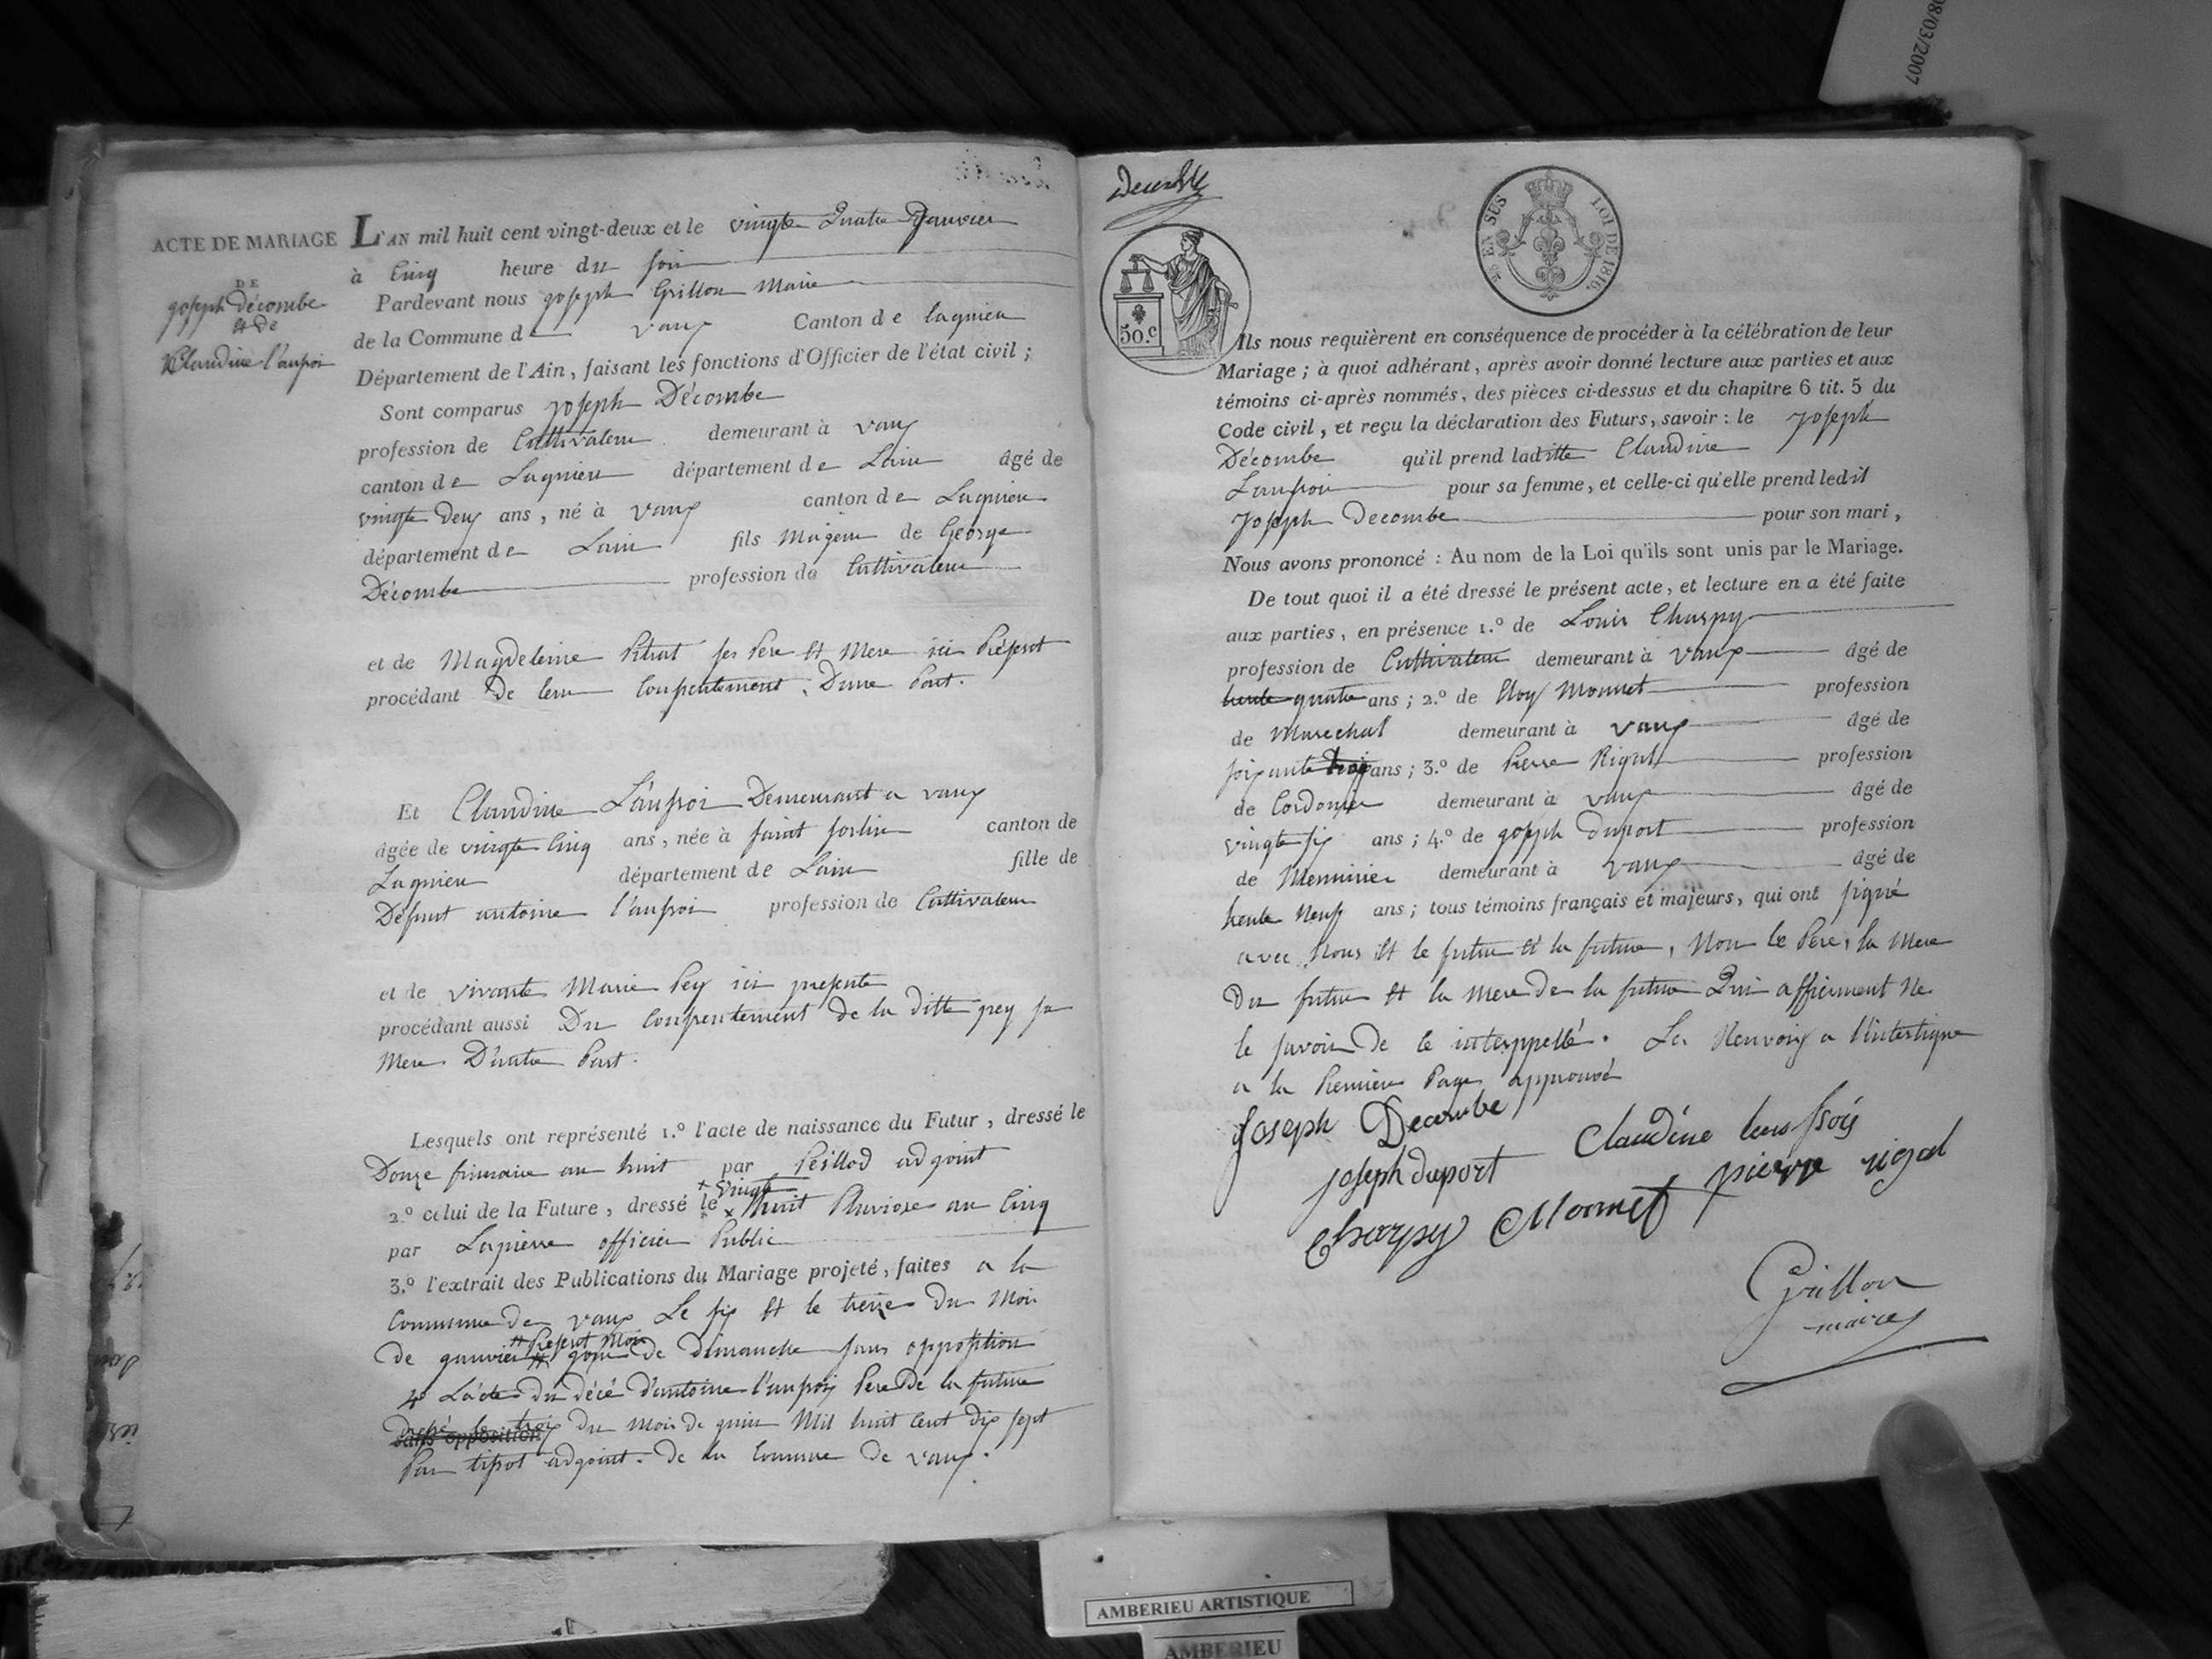 08/03/2007
ACTE DE MARIAGE
DE
joseph Décombe
et de
Claudine l'ausoir
L'AN mil huit cent vingt-deux et le vingte Quatre Janvier
à Cinq heure du soir
Pardevant nous joseph Grillon Maire
de la Commune de vaux Canton de lagnieu
Département de l'Ain, faisant les fonctions d'Officier de l'état civil ;
Sont comparus joseph Décombe
profession de Cultivateur demeurant à vaux
canton de Lagnieu département de Lain âgé de
vingte deux ans, né à vaux canton de Lagnieu
département de Lain fils Majeur de George
Décombe profession de Cultivateur
et de Magdeleine Pitrat ses Pere et Mere ici Présent
procédant de leur Consentement, Dune Part.
Et Claudine Demeurant a vaux
âgée de vingte Cinq ans, née à saint sorlin canton de
Lagnieu département de Lain fille de
Défunt antoine profession de Cultivateur
et de vivante Marie Pey ici presente
procédant aussi Du Consentement de la ditte pey sa
Mere D'autre Part.
Lesquels ont représenté 1.º l'acte de naissance du Futur, dressé le
Douze frimaire an huit par Peillod adjoint
2.º celui de la Future, dressé le vingt huit Pluviose an Cinq
par Lapierre officier Public
3.º l'extrait des Publications du Mariage projeté, faites a la
Commune de vaux Le six et le treize Du Moi
de janvier Présent Moi jour de dimanche sans oppostion
4º L'acte du décé d'antoine Pere De la future
sans opposition
Dressé le trois du mois de juin Mil huit Cent dix sept
Par tissot adjoint de la Commune de vaux.
Decombe
50.c
25 EN SUS
LOI DE 1816.
Ils nous requièrent en conséquence de procéder à la célébration de leur
Mariage ; à quoi adhérant, après avoir donné lecture aux parties et aux
témoins ci-après nommés, des pièces ci-dessus et du chapitre 6 tit. 5 du
Code civil, et reçu la déclaration des Futurs, savoir : le joseph
Décombe qu'il prend laditte Claudine
pour sa femme, et celle-ci qu'elle prend ledit
joseph Decombe pour son mari,
Nous avons prononcé : Au nom de la Loi qu'ils sont unis par le Mariage.
De tout quoi il a été dressé le présent acte, et lecture en a été faite
aux parties, en présence 1.º de Louis Charpy
profession de Cultivateur demeurant à vaux âgé de
trente quatre ans ; 2.º de Eloy Monnet profession
de Marechal demeurant à vaux âgé de
soixante trois ans ; 3.º de Pierre Rigal profession
de Cordonier demeurant à vaux âgé de
vingte six ans ; 4.º de joseph duport profession
de Menuisier demeurant à vaux âgé de
trente Neuf ans ; tous témoins français et majeurs, qui ont signé
avec Nous et le futur et la future, Non le Pere, la Mere
Du futur et la Mere de la future Qui affirment Ne
le savoir de ce interppellé. Les Renvois a l'intertigne
a la Premiere Page approuvé
Joseph Decombe
Claudine
joseph duport
pierre rigal
Charpy Monnet
Grillon
maire
AMBERIEU ARTISTIQUE
AMBERIEU